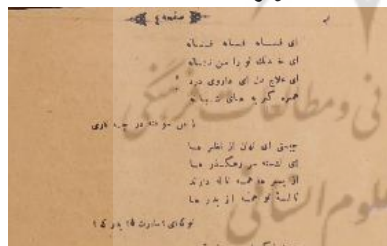 صفحه ٤
ای فسانه فسانه فسانه
ای خدنگ تو را من نشانه
ای علاج دل ای داروی درد
همره گریه های شبانه
با من سوخته در چه کاری
چیستی ای نهان از نظر ها
ای نشسته سر رهگذر ها
از پسر ها همه ناله دارند
نالهٔ تو همه از پدر ها
تو که‌ای مادرت که پدر که؟